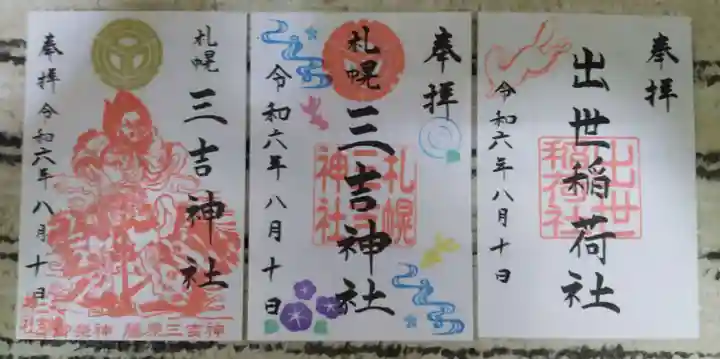 奉拝
令和六年八月十日
札幌
三吉神社
藤原三吉神
奉拝
札幌
三吉神社
令和六年八月十日
札幌
三吉
神社
奉拝
出世稲荷社
令和六年八月十日
出世
稲荷社